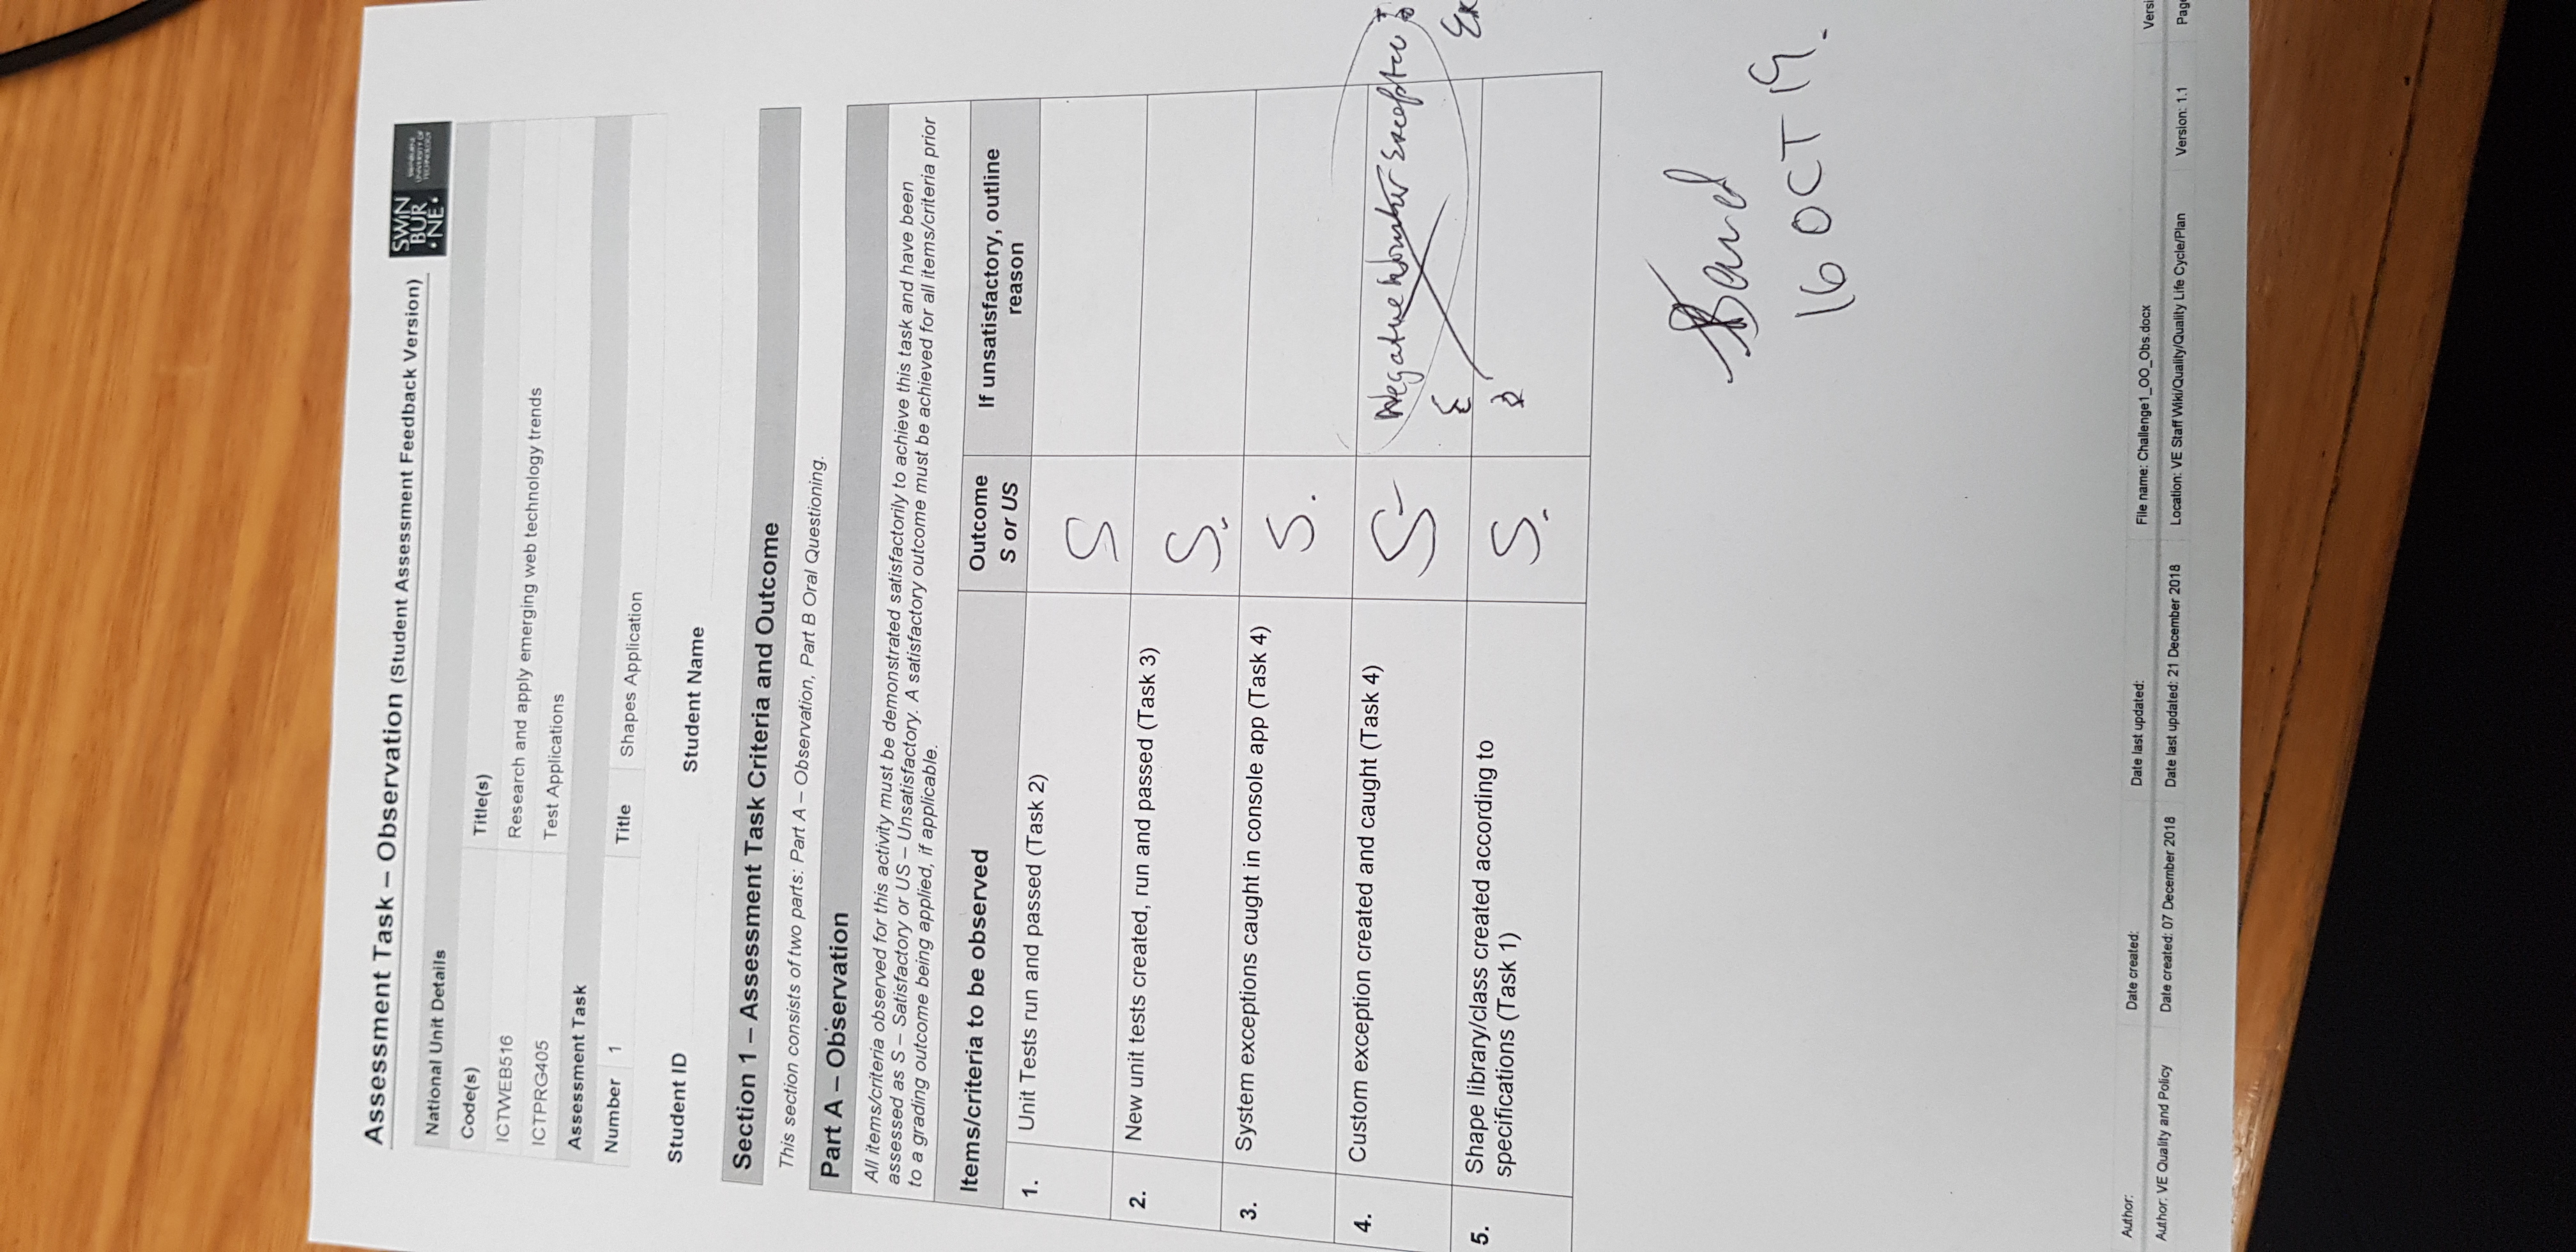 Assessment Task – Observation (Student Assessment Feedback Version)
SWIN
BUR
•NE•
SWINBURNE
UNIVERSITY OF
TECHNOLOGY
National Unit Details
Code(s) Title(s)
ICTWEB516 Research and apply emerging web technology trends
ICTPRG405 Test Applications
Assessment Task
Number 1 Title Shapes Application
Student ID Student Name
Section 1 – Assessment Task Criteria and Outcome
This section consists of two parts: Part A – Observation, Part B Oral Questioning.
Part A – Observation
All items/criteria observed for this activity must be demonstrated satisfactorily to achieve this task and have been
assessed as S – Satisfactory or US – Unsatisfactory. A satisfactory outcome must be achieved for all items/criteria prior
to a grading outcome being applied, if applicable.
Items/criteria to be observed Outcome If unsatisfactory, outline
S or US reason
1. Unit Tests run and passed (Task 2)
S
2. New unit tests created, run and passed (Task 3)
S.
3. System exceptions caught in console app (Task 4)
S.
4. Custom exception created and caught (Task 4)
S Negative Number
5. Shape library/class created according to
specifications (Task 1)
S.
16 OCT 19.
Author: Date created: Date last updated: File name: Challenge1_OO_Obs.docx Versi
Author: VE Quality and Policy Date created: 07 December 2018 Date last updated: 21 December 2018 Location: VE Staff Wiki/Quality/Quality Life Cycle/Plan Version: 1.1 Pag